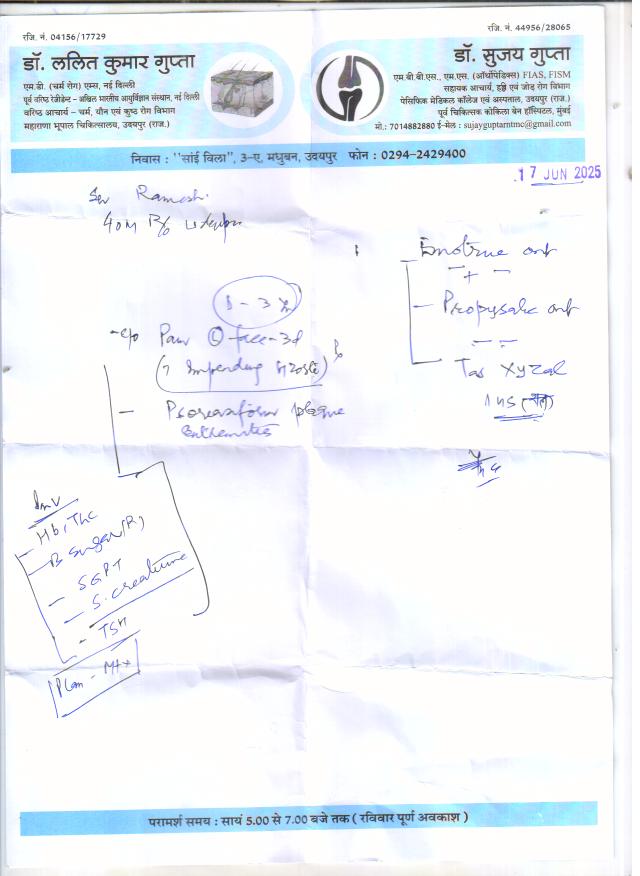 रजि. नं. 04156/17729
डॉ. ललित कुमार गुप्ता
एम.डी. (चर्म रोग) एम्स, नई दिल्ली
पूर्व वरिष्ठ रेजीडेन्ट - अखिल भारतीय आयुर्विज्ञान संस्थान, नई दिल्ली
वरिष्ठ आचार्य - चर्म, यौन एवं कुष्ठ रोग विभाग
महाराणा भूपाल चिकित्सालय, उदयपुर (राज.)
रजि. नं. 44956/28065
डॉ. सुजय गुप्ता
एम.बी.बी.एस., एम.एस. (ऑर्थोपेडिक्स) FIAS, FISM
सहायक आचार्य, हड्डी एवं जोड़ रोग विभाग
पेसिफिक मेडिकल कॉलेज एवं अस्पताल, उदयपुर (राज.)
पूर्व चिकित्सक कोकिला बेन हॉस्पिटल, मुंबई
मो.: 7014882880 ई-मेल : sujayguptarntmc@gmail.com
निवास : "सांई विला", 3-ए, मधुबन, उदयपुर फोन : 0294-2429400
17 JUN 2025
Ramesh
40 M R/o
ont
+
Propysalic ont
Tab Xyzal
1 HS
c/o Pain face - 3d
Impending
Psoriasiform plaque
Inv
Hb, TLC
B sugar (R)
SGPT
S. creatinine
TSH
Plan - Mtx
परामर्श समय : सायं 5.00 से 7.00 बजे तक ( रविवार पूर्ण अवकाश )